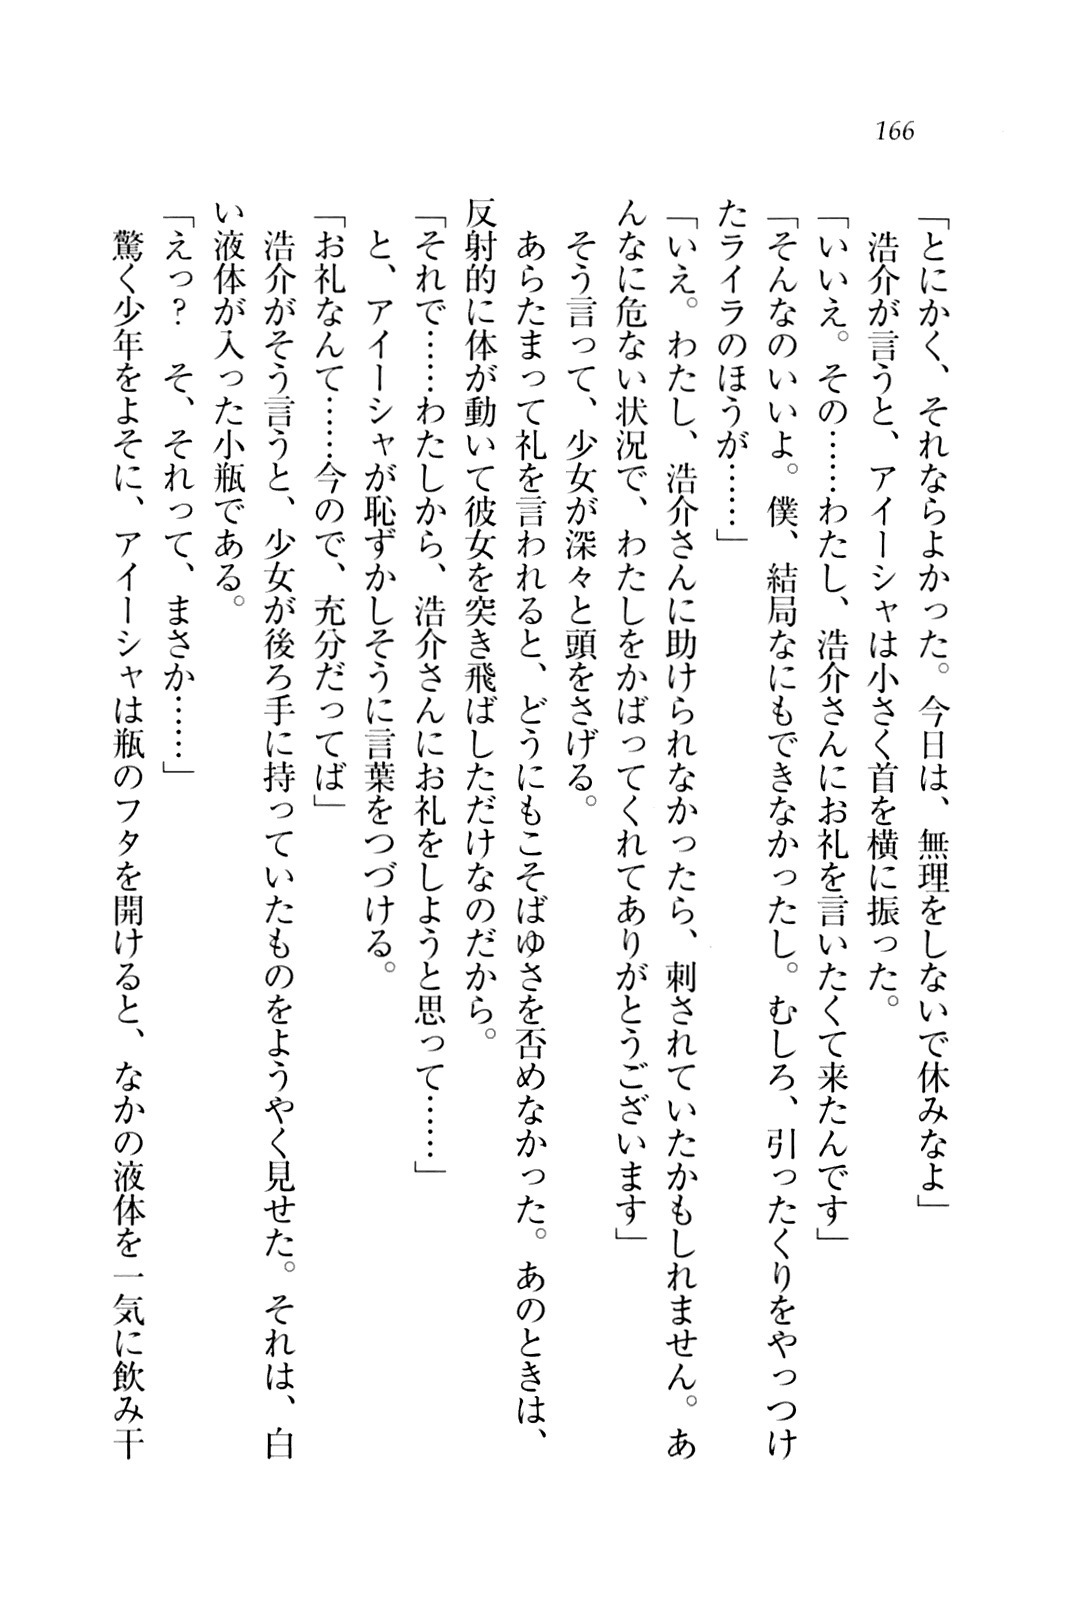 166
「とにかく、それならよかった。今日は、無理をしないで休みなよ」
　浩介が言うと、アイーシャは小さく首を横に振った。
「いいえ。その……わたし、浩介さんにお礼を言いたくて来たんです」
「そんなのいいよ。僕、結局なにもできなかったし。むしろ、引ったくりをやっつけ
たライラのほうが……」
「いえ。わたし、浩介さんに助けられなかったら、刺されていたかもしれません。あ
んなに危ない状況で、わたしをかばってくれてありがとうございます」
　そう言って、少女が深々と頭をさげる。
　あらたまって礼を言われると、どうにもこそばゆさを否めなかった。あのときは、
反射的に体が動いて彼女を突き飛ばしただけなのだから。
「それで……わたしから、浩介さんにお礼をしようと思って……」
　と、アイーシャが恥ずかしそうに言葉をつづける。
「お礼なんて……今ので、充分だってば」
　浩介がそう言うと、少女が後ろ手に持っていたものをようやく見せた。それは、白
い液体が入った小瓶である。
「えっ？　そ、それって、まさか……」
　驚く少年をよそに、アイーシャは瓶のフタを開けると、なかの液体を一気に飲み干